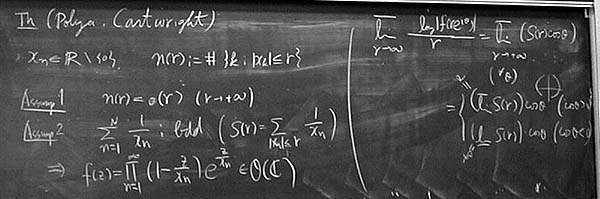 Th (Polya, Cartwright)
xₙ ∈ ℝ \ {0}, n(r) := # {k ; |xₖ| ≤ r}
Assump 1 n(r) = o(r) (r→+∞)
Assump 2 ∑_{n=1}^{N} 1/xₙ : bdd (S(r) = ∑_{|xₙ| ≤ r} 1/xₙ)
⇒ f(z) = ∏_{n=1}^{∞} (1 - z/xₙ) e^{z/xₙ} ∈ O(ℂ)
lim_{r→∞} log|f(re^{iθ})| / r = lim_{r→+∞} (S(r) cosθ)
(∀θ)
= { (lim S(r)) cosθ (cosθ>
(lim S(r)) cosθ (cosθ<